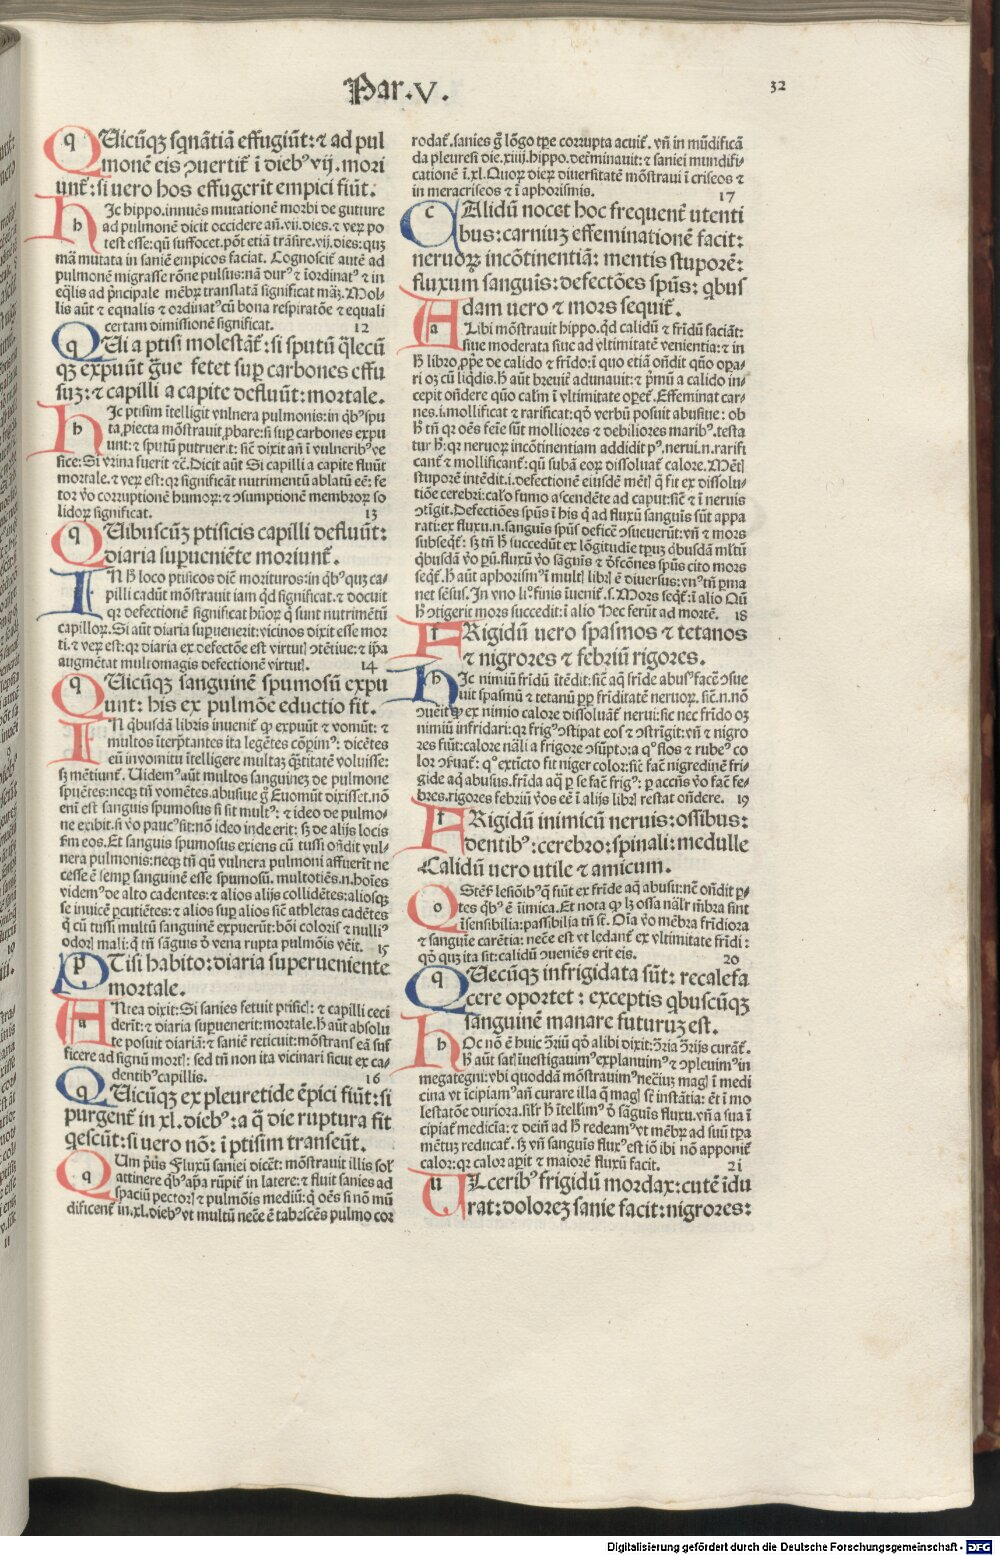 Par.V.
32
QUicũqꝫ sq̃nãtiã effugiũt:⁊ ad pul
monẽ eis ꝯuertit̃ ĩ dieb⁹ vij.mori
unt̃:si uero hos effugerit empici fiũt.
HIc hippo.innuẽs mutationẽ morbi de gutture
ad pulmonẽ dicit occidere añ.vij.dies.⁊ veꝝ po
test esse:qñ suffocet.põt etiã trãsire.vij.dies:quꝫ
mã mutata in saniẽ empicos faciat. Cognoscit̃ autẽ ad
pulmonẽ migrasse rõne pulsus:nã dur⁹ ⁊ ĩordinat⁹ ⁊ in
eq̃lis ad pñcipale mẽbꝝ translatã significat mãꝫ.Mol-
lis aũt ⁊ equalis ⁊ ordinat⁹ cũ bona respiratõe ⁊ equali
certam dimissionẽ significat. 12
QUi a ptisi molestãt̃:si sputũ q̃lecũ
qꝫ expuũt g̃ue fetet suꝑ carbones effu
suꝫ:⁊ capilli a capite defluũt:mortale.
HIc ptisim ĩtelligit vulnera pulmonis:in qb⁹ spu
ta,piecta mõstrauit ꝓbare:si suꝑ carbones expu
unt:⁊ sputũ putruerit: sic̃ dixit añ ĩ vulnerib⁹ ve
sice:Si vrina fuerit ⁊c̃.Dicit aũt Si capilli a capite fluũt
mortale.⁊ veꝝ est:qꝛ significãt nutrimentũ ablatũ eẽ: fe
tor v̾o corruptionẽ humoꝝ:⁊ ꝯsumptionẽ membroꝝ so
lidoꝝ significat. 13
QUibuscũꝫ ptisicis capilli defluũt:
diaria suꝑueniẽte moriunt̃.
IN h̃ loco ptisicos diẽ morituros:in qb⁹quꝫ ca-
pilli cadũt mõstrauit iam qd significat.⁊ docuit
qꝛ defectionẽ significat hũoꝝ q̃ sunt nutrimẽtũ
capilloꝝ.Si aũt diaria suꝑuenerit:vicinos dixit esse mor
ti.⁊ veꝝ est:qꝛ diaria ex defectõe est virtuꝉ ꝯtẽtiue:⁊ ip̃a
augmẽtat multomagis defectionẽ virtuꝉ. 14
QUicũqꝫ sanguinẽ spumosũ expu
unt: his ex pulmõe eductio fit.
IN q̃busdã libris inuenit̃ qꝙ expuũt ⁊ vomũt: ⁊
multos ĩterp̃tantes ita legẽtes cõꝑim⁹: dicẽtes
eũ in vomitu ĩtelligere multaꝫ qꝫtitatẽ voluisse:
sꝫ mẽtiunt̃. Uidem⁹ aũt multos sanguineꝫ de pulmone
spuẽtes:necꝫ tñ vomẽtes.abusiue g̃ Euomũt dixisset.nõ
enĩ est sanguis spumosus si sit mult⁹: ⁊ ideo de pulmo-
ne exibit.si v̾o pauc⁹ sit:nõ ideo inde erit: sꝫ de alijs locis
fm̃ eos.Et sanguis spumosus exiens cũ tussi oñdit vul-
nera pulmonis:necꝫ tñ qũ vulnera pulmoni affuerit ne
cesse ẽ semꝑ sanguinẽ esse spumosũ. multotiẽs.n.hoĩes
videm⁹ de alto cadentes:⁊ alios alijs collidẽtes:aliosqꝫ
se inuicẽ ꝑcutiẽtes:⁊ alios suꝑ alios sic̃ athletas cadẽtes
q̃ cũ tussi multũ sanguinẽ expuerũt:boni coloris ⁊ nulli⁹
odoꝝ mali:q̃ tñ sãguis ð vena rupta pulmõis vẽit. 15
PTisi habito:diaria superueniente
mortale.
ANtea dixit:Si sanies fetuit ptisicꝭ: ⁊ capilli ceci
derĩt:⁊ diaria suꝑuenerit:mortale.h̃ aũt absolu
te posuit diariã:⁊ saniẽ reticuit:mõstrans eã suf
ficere ad signũ mortꝭ: sed tñ non ita vicinari sicut ex ca-
dentib⁹ capillis. 16
QUicũqꝫ ex pleuretide ẽpici fiũt:si
purgent̃ in xl.dieb⁹: a q̃ die ruptura fit
qescũt:si uero nõ: ĩ ptisim transeũt.
QUm p̃us Fluxũ saniei dicẽt: mõstrauit illis sol'
attinere qb⁹ ap̃a rũpit̃ in latere:⁊ fluit sanies ad
spaciũ pectorꝭ ⁊ pulmõis mediũ:q̃ oẽs si nõ mũ
dificent̃ in.xl.dieb⁹ vt multũ nec̃e ẽ tabescẽs pulmo cor
rodat̃.sanies g̃ lõgo tꝑe corrupta acuit̃. vñ in mũdificã
da pleuresi die.xiiij.hippo.det̃minauit:⁊ saniei mundifi-
cationẽ ĩ.xl.Quoꝝ dieꝝ diuersitatẽ mõstraui ĩ criseos ⁊
in meracriseos ⁊ ĩ aphorismis. 17
CAlidũ nocet hoc frequent̃ utenti
bus:carniuꝫ effeminationẽ facit:
neruoꝝ incõtinentiã: mentis stuporẽ:
fluxum sanguis:defectões sp̃us: qbus
dam uero ⁊ mors sequit̃.
ALibi mõstrauit hippo.qd calidũ ⁊ fr̃idũ faciãt:
siue moderata siue ad vltimitatẽ venientia:⁊ in
h̃ libro,ꝓp̃e de calido ⁊ fr̃ido:ĩ quo etiã oñdit qũo oꝑa-
ri oꝫ cũ liq̃dis.h̃ aũt breuit̃ adunauit:⁊ p̃mũ a calido in-
cepit oñdere quo calm ĩ vltimitate oꝑet̃.Effeminat car-
nes.i.mollificat ⁊ rarificat:qð verbũ posuit abusiue: ob
h̃ tñ qꝛ oẽs feĩe sũt molliores ⁊ debiliores marib⁹.testa
tur h̃:qꝛ neruoꝝ incõtinentiam addidit p⁹.nerui.n.rarifi
cant̃ ⁊ mollificant̃:qũ subã eoꝝ dissoluat̃ calore.Mẽtꝭ
stuporẽ intẽdit.i.defectionẽ eiusdẽ mẽtꝭ q̃ fit ex dissolu-
tiõe cerebri:calo fumo ascendẽte ad caput:sic̃ ⁊ ĩ neruis
ꝯtĩgit.Defectiões sp̃us ĩ his q̃ ad fluxũ sanguis sũt appa
rati:ex fluxu.n.sanguis sp̃us deficẽ ꝯsueuerũt:vñ ⁊ mors
subseqt̃: sꝫ tñ h̃ succedũt ex lõgitudie tꝑuꝫ q̃busdã mĩtũ
q̃busdã v̾o ꝑũ.fluxũ v̾o sãgnis ⁊ ð̃fc̃ones sp̃us cito mors
seqt̃.h̃ aũt aphorism⁹ ĩ multꝭ librꝭ ẽ diuersus:vn⁹ tñ ꝑma
net sẽsus.In vno li⁰.finis ĩuenit̃.s.Mors seqt̃:ĩ alio Qũ
h̃ ꝯtigerit mors succedit:ĩ alio Hec ferũt ad mortẽ. 18
FRigidũ uero spasmos ⁊ tetanos
⁊ nigrores ⁊ febriũ rigores.
HIc nimiũ fr̃idũ ĩtẽdit:sic̃ aq̃ fr̃ide abus⁹ facẽ ꝯsue
uit spasmũ ⁊ tetanũ ꝓꝑ fr̃iditatẽ neruoꝝ. sic̃.n.nõ
ꝯueĩt qꝙ ex nimio calore dissoluãt̃ nerui:sic nec fr̃ido oꝫ
nimiũ infridari:qꝛ frig⁹ ꝯstipat eos ⁊ ꝯstrĩgit:vñ ⁊ nigro
res fiũt:calore nãli a frigore ꝯsũpto:a q⁰ flos ⁊ rube⁹ co
lor ꝯseruat̃: q⁰ extĩcto fit niger color:sic̃ fac̃ nigredinẽ fri-
gide aq̃ abusus.fr̃ida aq̃ ꝑ se fac̃ frig⁹: ꝑ accñs v̾o fac̃ fe-
bres.rigores febriũ v̾os eẽ ĩ alijs librꝭ restat oñdere. 19
FRigidũ inimicũ neruis:ossibus:
dentib⁹:cerebro:spinali: medulle
Calidũ uero utile ⁊ amicum.
OStẽs lesiõib⁹ q̃ fiũt ex fr̃ide aq̃ abusu:nẽ oñdit ꝑ-
tes qb⁹ ẽ ĩimica.Et nota qꝙ lꝫ ossa nãlr̃ m̃bra sint
ĩsensibilia:passibilia tñ st̃. Oĩa v̾o mẽbra fr̃idiora
⁊ sanguĩe carẽtia: nec̃e est vt ledant̃ ex vltimitate fr̃idi:
qð quꝫ ita sit:calidũ ꝯueniẽs erit eis. 20
QUecũqꝫ infrigidata sũt: recalefa
cere oportet : exceptis qbuscũqꝫ
sanguinẽ manare futuruꝫ est.
HOc nõ ẽ huic ꝯ̃riũ qð alibi dixit:ꝯ̃ria ꝯ̃rijs curãt̃.
h̃ aũt satꝭ ĩuestigauim⁹ explanuim⁹ ⁊ ꝯpleuim⁹ in
megategni:vbi quoddã mõstrauim⁹ nec̃iuꝫ magꝭ ĩ medi
cina vt ĩcipiam⁹ añ curare illa q̃ magꝭ st̃ instãtia: et̃ ĩ mo
lestatõe duriora.silr̃ h̃ ĩtellim⁹ ð sãguis fluxu.vñ a sua ĩ
cipiat̃ medicĩa:⁊ deiñ ad h̃ redeam⁹vt mẽbꝝ ad suũ tꝑa
mẽtuꝫ reducat̃. sꝫ vñ sanguis flux⁹ est iõ ibi nõ apponit̃
calor:qꝛ calor aꝑit ⁊ maiorẽ fluxũ facit. 21
ULcerib⁹ frigidũ mordax:cutẽ ĩdu
rat:doloreꝫ sanie facit:nigrores:
Digitalisierung gefördert durch die Deutsche Forschungsgemeinschaft - DFG